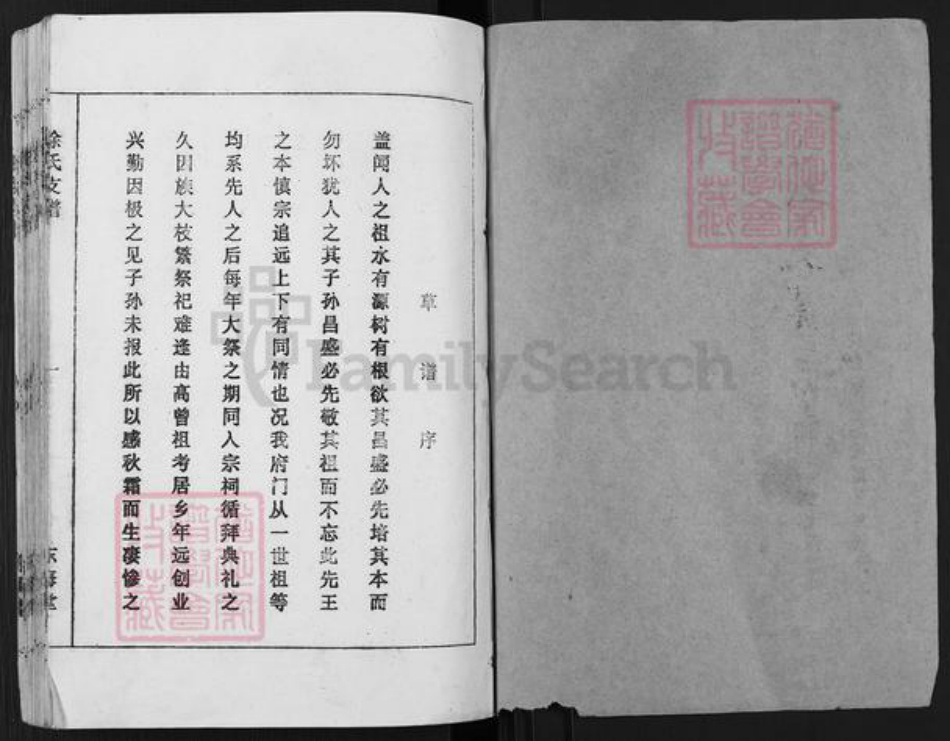 草谱序
盖闻人之祖水有源树有根欲其昌盛必先培其本而
勿坏犹人之其子孙昌盛必先敬其祖而不忘此先王
之本慎宗追远上下有同情也况我府门从一世祖等
均系先人之后每年大祭之期同入宗祠循拜典礼之
久因族大枝繁祭祀难逢由高曾祖考居乡年远创业
兴勤因极之见子孙未报此所以感秋霜而生凄惨之
徐氏支谱
一
东海堂
FamilySearch